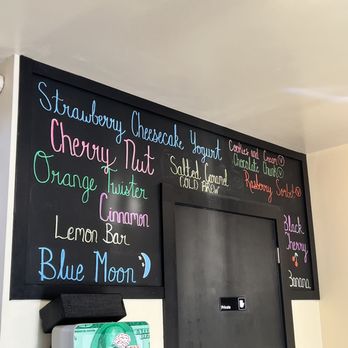 Strawberry Cheesecake Yogurt
Cherry Nut
Orange Twister
Cinnamon
Lemon Bar
Blue Moon
Salted Caramel
COLD BREW
Cookies and Cream
Chocolate Chunk
Raspberry Sorbet
Black
Cherry
Banana
Private